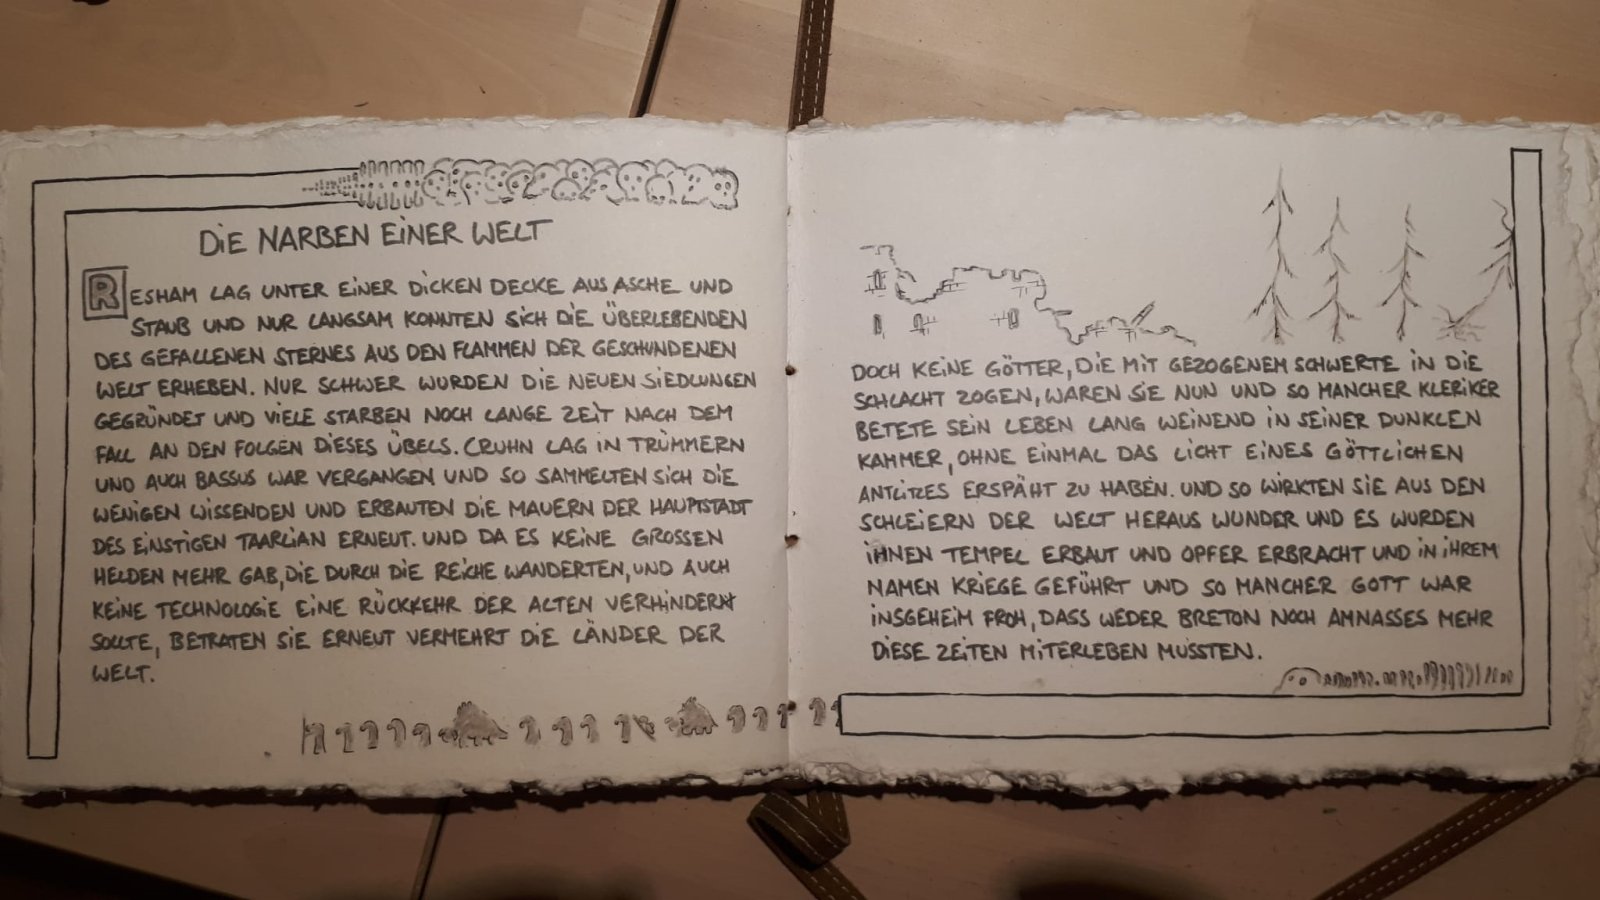 DiE NARBEN EiNER WELT
RESHAM LAG UNTER EiNER DiCKEN DECKE AUS ASCHE UND
STAUB UND NUR LANGSAM KONNTEN SiCH DiE ÜBERLEBENDEN
DES GEFALLENEN STERNES AUS DEN FLAMMEN DER GESCHUNDENEN
WELT ERHEBEN. NUR SCHWER WURDEN DiE NEUEN SiEDLUNGEN
GEGRÜNDET UND ViELE STARBEN NOCH LANGE ZEiT NACH DEM
FALL AN DEN FOLGEN DiESES ÜBELS. CRUHN LAG iN TRÜMMERN
UND AUCH BASSUS WAR VERGANGEN UND SO SAMMELTEN SiCH DiE
WENiGEN WiSSENDEN UND ERBAUTEN DiE MAUERN DER HAUPTSTADT
DES EiNSTiGEN TAARLiAN ERNEUT. UND DA ES KEiNE GROSSEN
HELDEN MEHR GAB, DiE DURCH DiE REiCHE WANDERTEN, UND AUCH
KEiNE TECHNOLOGiE EiNE RÜCKKEHR DER ALTEN VERHiNDERN
SOLLTE, BETRATEN SiE ERNEUT VERMEHRT DiE LÄNDER DER
WELT.
DOCH KEiNE GÖTTER, DiE MiT GEZOGENEM SCHWERTE iN DiE
SCHLACHT ZOGEN, WAREN SiE NUN UND SO MANCHER KLERiKER
BETETE SEiN LEBEN LANG WEiNEND iN SEiNER DUNKLEN
KAMMER, OHNE EiNMAL DAS LiCHT EiNES GÖTTLiCHEN
ANTLiTZES ERSPÄHT ZU HABEN. UND SO WiRKTEN SiE AUS DEN
SCHLEiERN DER WELT HERAUS WUNDER UND ES WURDEN
iHNEN TEMPEL ERBAUT UND OPFER ERBRACHT UND iN iHREM
NAMEN KRiEGE GEFÜHRT UND SO MANCHER GOTT WAR
iNSGEHEiM FROH, DASS WEDER BRETON NOCH AMNASSES MEHR
DiESE ZEiTEN MiTERLEBEN MUSSTEN.